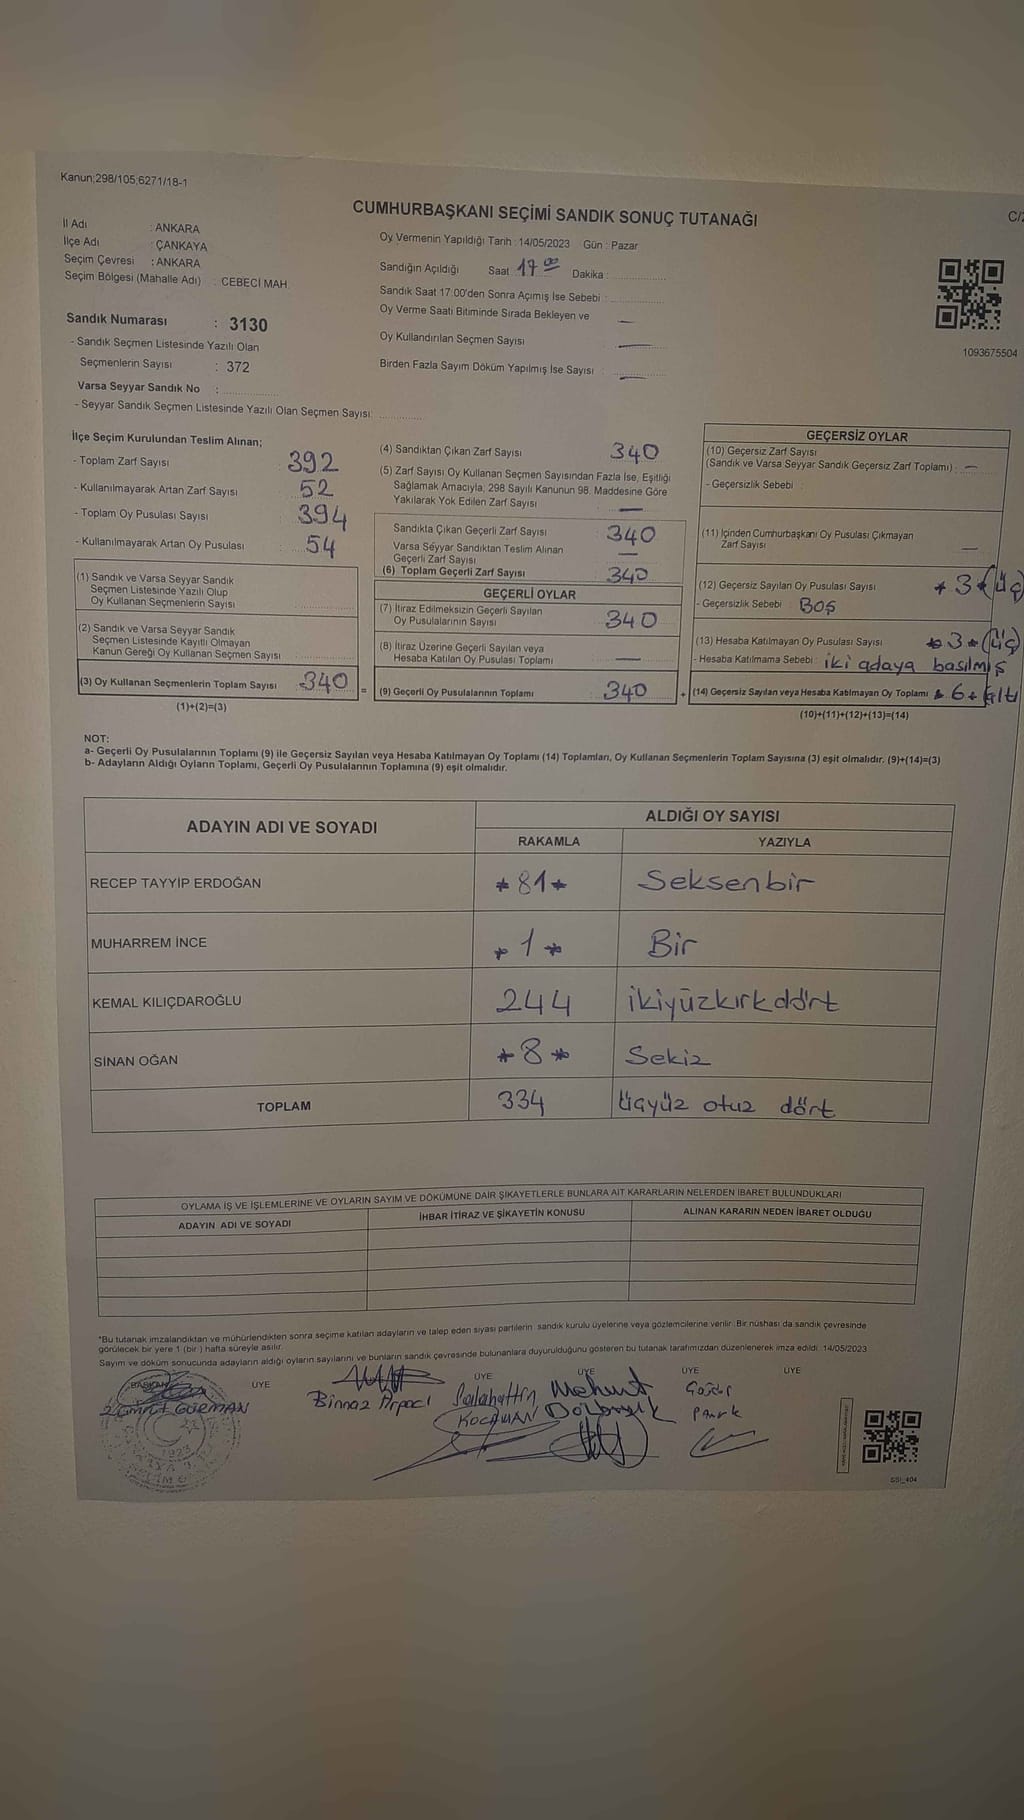 Kanun:298/105;6271/18-1
CUMHURBAŞKANI SEÇİMİ SANDIK SONUÇ TUTANAĞI
C/2
İl Adı : ANKARA
İlçe Adı : ÇANKAYA
Seçim Çevresi : ANKARA
Seçim Bölgesi (Mahalle Adı) : CEBECİ MAH.
Sandık Numarası : 3130
- Sandık Seçmen Listesinde Yazılı Olan
Seçmenlerin Sayısı : 372
Varsa Seyyar Sandık No :
- Seyyar Sandık Seçmen Listesinde Yazılı Olan Seçmen Sayısı:
Oy Vermenin Yapıldığı Tarih : 14/05/2023 Gün : Pazar
Sandığın Açıldığı Saat 17 00 Dakika :
Sandık Saat 17:00'den Sonra Açımış İse Sebebi :
Oy Verme Saati Bitiminde Sırada Bekleyen ve
Oy Kullandırılan Seçmen Sayısı
Birden Fazla Sayım Döküm Yapılmış İse Sayısı :
1093675504
İlçe Seçim Kurulundan Teslim Alınan;
- Toplam Zarf Sayısı 392
- Kullanılmayarak Artan Zarf Sayısı 52
- Toplam Oy Pusulası Sayısı 394
- Kullanılmayarak Artan Oy Pusulası 54
(1) Sandık ve Varsa Seyyar Sandık
Seçmen Listesinde Yazılı Olup
Oy Kullanan Seçmenlerin Sayısı
(2) Sandık ve Varsa Seyyar Sandık
Seçmen Listesinde Kayıtlı Olmayan
Kanun Gereği Oy Kullanan Seçmen Sayısı
(3) Oy Kullanan Seçmenlerin Toplam Sayısı 340 =
(1)+(2)=(3)
(4) Sandıktan Çıkan Zarf Sayısı 340
(5) Zarf Sayısı Oy Kullanan Seçmen Sayısından Fazla İse, Eşitliği
Sağlamak Amacıyla, 298 Sayılı Kanunun 98. Maddesine Göre
Yakılarak Yok Edilen Zarf Sayısı —
Sandıkta Çıkan Geçerli Zarf Sayısı 340
Varsa Seyyar Sandıktan Teslim Alınan
Geçerli Zarf Sayısı —
(6) Toplam Geçerli Zarf Sayısı 340
GEÇERLİ OYLAR
(7) İtiraz Edilmeksizin Geçerli Sayılan
Oy Pusulalarının Sayısı 340
(8) İtiraz Üzerine Geçerli Sayılan veya
Hesaba Katılan Oy Pusulası Toplamı —
(9) Geçerli Oy Pusulalarının Toplamı 340 +
GEÇERSİZ OYLAR
(10) Geçersiz Zarf Sayısı
(Sandık ve Varsa Seyyar Sandık Geçersiz Zarf Toplamı) : —
- Geçersizlik Sebebi :
(11) İçinden Cumhurbaşkanı Oy Pusulası Çıkmayan
Zarf Sayısı —
(12) Geçersiz Sayılan Oy Pusulası Sayısı *3*(üç
- Geçersizlik Sebebi : BOŞ
(13) Hesaba Katılmayan Oy Pusulası Sayısı *3*(üç)
- Hesaba Katılmama Sebebi : iki adaya basılmış
(14) Geçersiz Sayılan veya Hesaba Katılmayan Oy Toplamı *6*(altı
(10)+(11)+(12)+(13)=(14)
NOT:
a- Geçerli Oy Pusulalarının Toplamı (9) ile Geçersiz Sayılan veya Hesaba Katılmayan Oy Toplamı (14) Toplamları, Oy Kullanan Seçmenlerin Toplam Sayısına (3) eşit olmalıdır. (9)+(14)=(3)
b- Adayların Aldığı Oyların Toplamı, Geçerli Oy Pusulalarının Toplamına (9) eşit olmalıdır.
ADAYIN ADI VE SOYADI
ALDIĞI OY SAYISI
RAKAMLA YAZIYLA
RECEP TAYYİP ERDOĞAN *81* Seksenbir
MUHARREM İNCE *1* Bir
KEMAL KILIÇDAROĞLU 244 ikiyüzkırkdört
SİNAN OĞAN *8* Sekiz
TOPLAM 334 üçyüz otuz dört
OYLAMA İŞ VE İŞLEMLERİNE VE OYLARIN SAYIM VE DÖKÜMÜNE DAİR ŞİKAYETLERLE BUNLARA AİT KARARLARIN NELERDEN İBARET BULUNDUKLARI
ADAYIN ADI VE SOYADI İHBAR İTİRAZ VE ŞİKAYETİN KONUSU ALINAN KARARIN NEDEN İBARET OLDUĞU
*Bu tutanak imzalandıktan ve mühürlendikten sonra seçime katılan adayların ve talep eden siyasi partilerin sandık kurulu üyelerine veya gözlemcilerine verilir. Bir nüshası da sandık çevresinde
görülecek bir yere 1 (bir ) hafta süreyle asılır.
Sayım ve döküm sonucunda adayların aldığı oyların sayılarını ve bunların sandık çevresinde bulunanlara duyurulduğunu gösteren bu tutanak tarafımızdan düzenlenerek imza edildi. 14/05/2023
BAŞKAN ÜYE ÜYE ÜYE ÜYE ÜYE
GÜRMAN Binnaz Arpacı Selahattin KOCAMAN Mehmet
1923
SSI_404